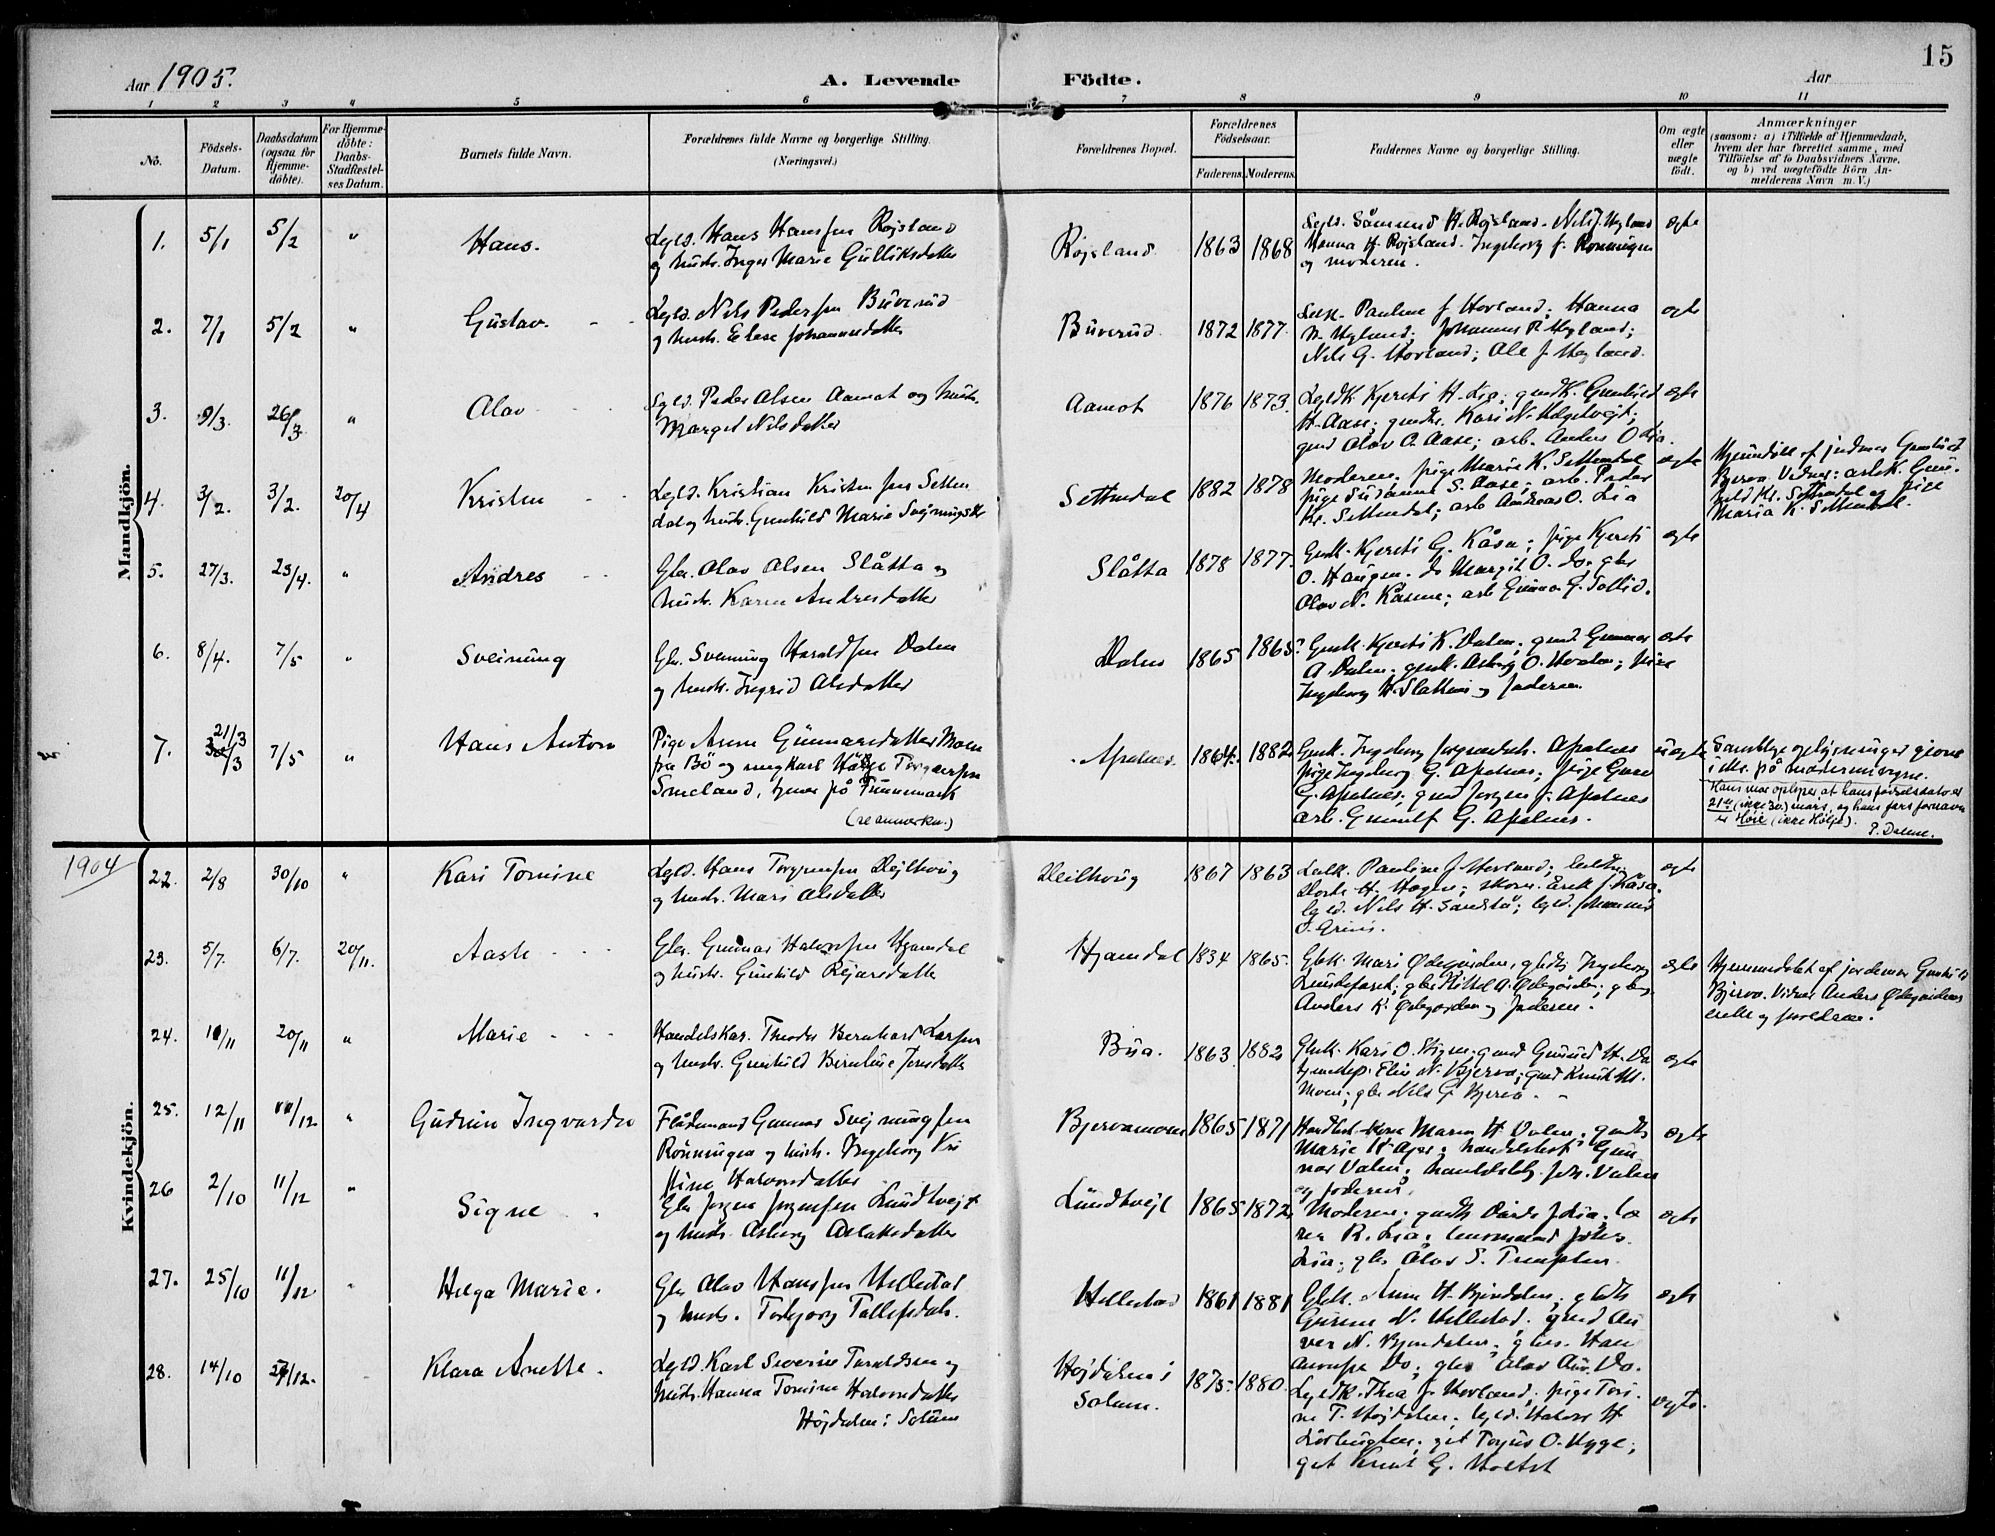 15
Aar 1905.
A. Levende Födte.
Aar
1 2 3 4 5 6 7 8 9 10 11
Nō.
Födsels-Datum.
Daabsdatum (ogsaa for Hjemme-döbte).
For Hjemme-döbte: Daabs-Stadfæstel-ses Datum.
Barnets fulde Navn.
Forældrenes fulde Navne og borgerlige Stilling.
(Næringsvei.)
Forældrenes Bopæl.
Forældrenes Födselsaar.
Faderens. Moderens.
Faddernes Navne og borgerlige Stilling.
Om ægte eller uægte födt.
Anmærkninger
(saasom: a) i Tilfælde af Hjemmedaab, hvem der har forrettet samme, med Tilföielse af to Daabsvidners Navne, og b) ved uægtefödte Börn An-melderens Navn m. V.)
Mandkjön.
1. 5/1 5/2 " Hans.
Lgld. Hans Hansen Røjsland
og hustr. Inger Marie Gulliksdatter
Røjsland 1863 1868
Hanna H. Røjsland. Ingeborg J. Rønningen
og moderen.
ægte
2. 7/1 5/2 " Gustav.
Lgld. Nils Pedersen Buverud
og hustr. Elese Johannesdatter
Buverud 1872 1877
Pauline J. Hovland; Hanna
N. Hyland; Johannes P. Hyland;
Nils G. Hovland; Ole J. Hyland.
ægte
3. 9/3. 26/3 " Olav
Lgld. Peder Olsen Aamot og hustr.
Marget Nilsdatter
Aamot 1876 1873.
Lgldk Kjersti H. Lia; gmdk. Gunhild
H. Aase; Kari N.
gmd Olav O. Aase; arb. Anders O Lia.
ægte
4. 3/2. 3/2. 20/4 Kristen
Lgld. Kristian Kristensen Setten
dal og hustr. Gunhild Marie Svejnungsdtr
Settendal 1882 1878
Moderen; pige Marie K. Settendal
pige Susanne S. Aase; arb. Peder
Kr. Settendal; arb Andreas O. Lia
ægte
Hjemdöbt af jordmor Gunhild
Bjerva Vidner: arbk. Gun-
hild Kr. Settendal og pige
Maria K. Settendal.
5. 27/3. 23/4. " Andres
Gbr. Olav Olsen Slåtta og
hustr. Karen Andresdatter
Slåtta 1878 1877.
Gmk. Kjersti G. Kåsa; pige Kjersti
O. Haugen. do Margit O. do; gbr
Olav N. Kåsene; arb Gunnar G. Sollid.
ægte
6. 8/4. 7/5 " Sveinung
Gbr. Sveinung Haraldsen Dalen
og hustr. Ingrid Olsdatter
Dalen 1865 1865?
Gmk. Kjersti K. Dalen; gmd. Gunnar
A. Dalen; gmk. Asberg O. Hvalen; pige
Ingeborg H. Slatten og faderen
ægte
7. 21/3 30/3 7/5 " Hans Anton
Pige Anne Gunnarsdatter Moen
fra Bö og ungkarl Halje Torgersen
Smeland, tjener på Finnemark
(se anmerkn.)
Apalnes. 1864. 1882
Gmk. Ingeborg Jørgensdtr. Apalnes
pige Ingeborg G. Apalnes; pige Guro
G. Apalnes. gmd Jørgen J. Apalnes
arb. Gunulf G. Apalnes.
uægte
Samtlige oplysninger givne
i Ms. på moderens vegne.
Hans mor oplyser at hans fødselsdato er
21de (ikke 30.) mars, og hans fars fornavn
er Høie (ikke Hølje). P. Dalene.
1904
Kvindekjön.
22. 2/8 30/10 " Kari Tomine
Lgld. Hans Torgersen Hejlhoug
og hustr. Mari Olsdatter
Heilhoug 1867 1863
Pauline J. Hovland;
Dorte H. Hagen; skom. Erik J. Kåsa.
lgld. Nils H. Sandstå; lgld. Johannes
J. Grini.
ægte
23. 5/7. 6/7. 20/11. Aaste
Gbr. Gunnar Halvorsen Hjamdal
og hustr. Gunhild Rejarsdatter
Hjamdal 1834 1865.
Gbk. Mari Ødegården; gbdtr. Ingeborg
Lundefaret; gbr. Kittel A. Ødegården; gbr
Anders K. Ødegården og faderen.
ægte
Hjemmedöbt af jordemor Gunhild
Bjerva. Vidner Anders Ødegårdens
enke og forældrene.
24. 10/11 20/11 " Marie
Handelskar. Theodor Bernhard Larsen
og hustr. Gunhild Bernline Jensdatter
Bua. 1863 1882
Gbk. Kari O. Stigen; gmd Gunuld H. Da
tjenestep. Elin N. Bjerva; gmd Knut M.
Moen; gbr Nils G. Bjerva.
ægte
25. 12/11 11/12 " Gudrun Ingvarda
Flådemand Gunnar Svejnungsen
Rönningen og hustr. Ingeborg Kri
stine Halvorsdatter
Bjervamoen 1865 1871
Kone Maren H. Dalen; gmdtr
Marie H. Ajer; handelsbet. Gun
nar Dalen; handelsbetj. Johs. Dalen
og faderen.
ægte
26 2/10 11/12 " Signe
Gbr Jørgen Jørgensen Lundtvejt
og hustr. Asberg Aslaksdatter
Lundtvejt 1865 1872
Moderen; gmdtr J. Lia; læ
rer R. Lia; Johs.
Lia; gbr Olav S.
ægte
27. 25/10 11/12 " Helga Marie.
Gbr Olav Hansen Hellestad
og hustr. Torbjørg Tallefsdatr.
Hellestad 1861 1881
Gbk. Anne H. Bjindalen; gbdtr
Gurine N. Hellestad; gmd Au
ver N. Bjindalen; gbr. Hans
Auversen Do; gbr Olav Auv. Do.
ægte
28. 14/10 27/12. Klara Anette.
Lgld. Karl Severin Taraldsen og
hustr. Hanna Tomine Halvorsdatter
Højdalen i Solum
Højdalen i
Solum. 1875. 1880.
Lgldk. Thea J. Hovland; pige Tori-
ne T. Højdalen; lgld. Halvor H
get Torjus O. Hygge;
get Knut G. Holtet
uægte.